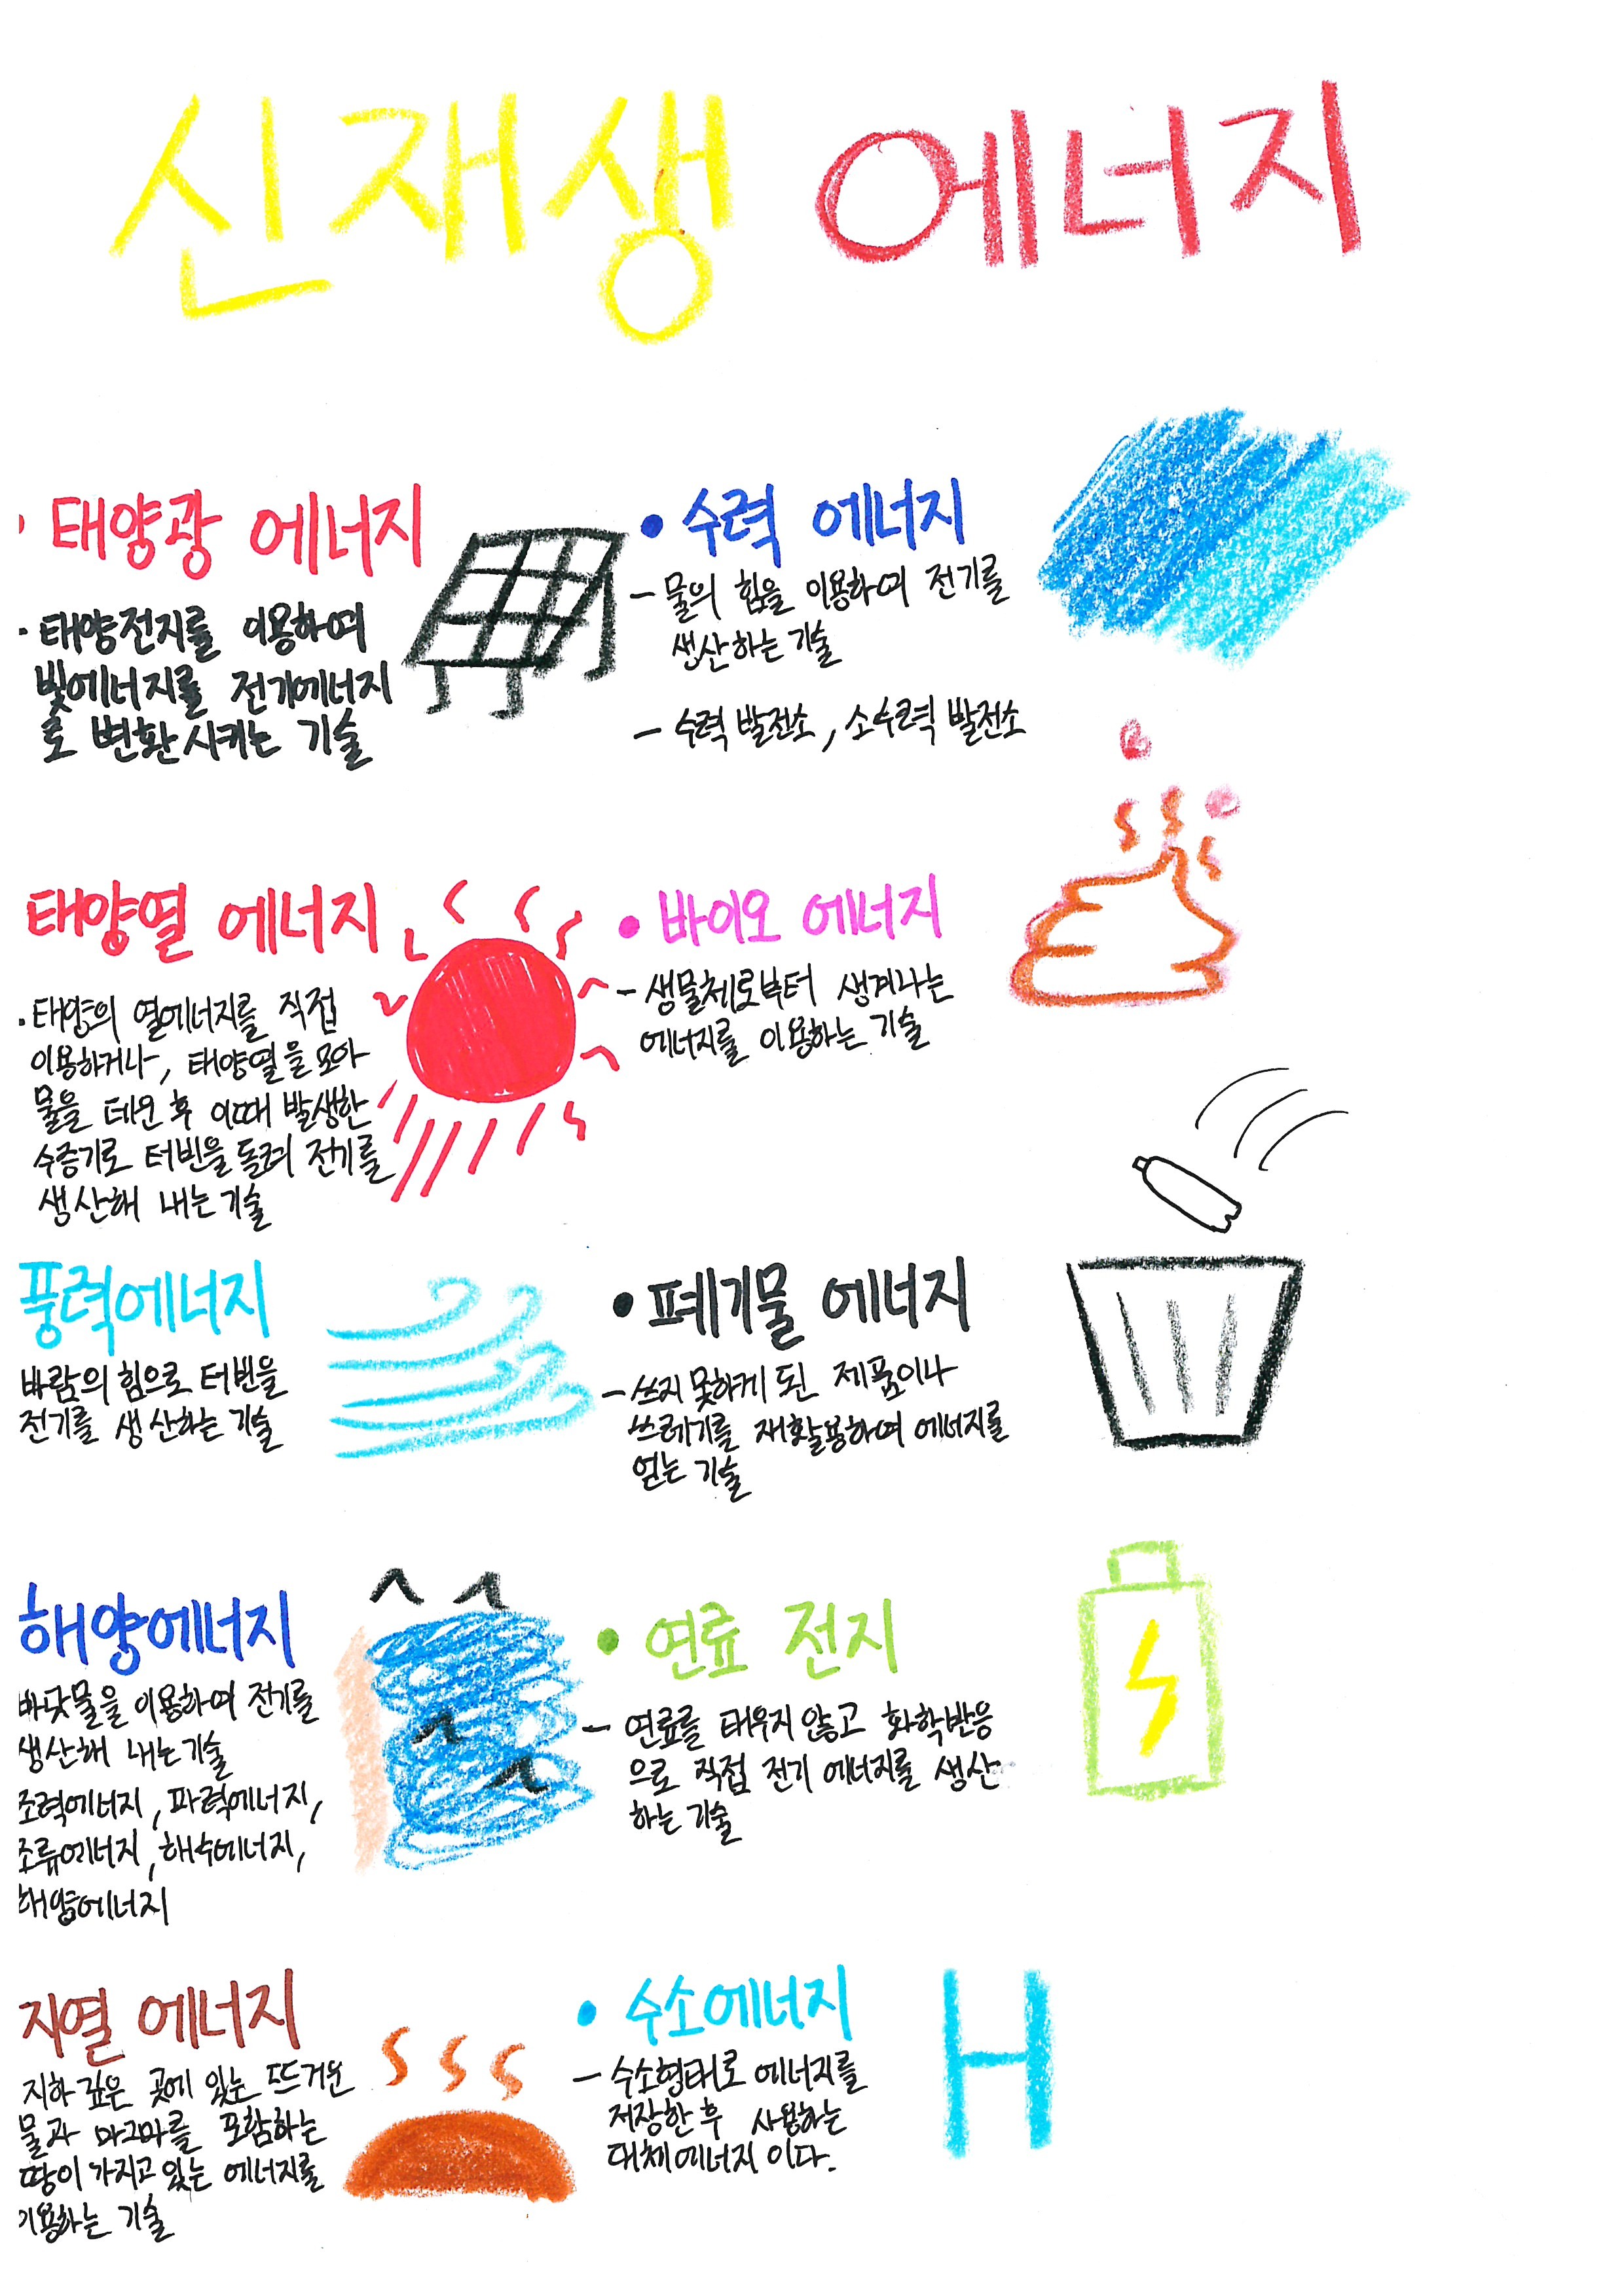 신재생 에너지
· 태양광 에너지
· 태양전지를 이용하여
빛에너지를 전기에너지
로 변환시키는 기술
태양열 에너지
· 태양의 열에너지를 직접
이용하거나, 태양열을 모아
물을 데운 후 이때 발생한
수증기로 터빈을 돌려 전기를
생산해 내는 기술
풍력에너지
바람의 힘으로 터빈을
전기를 생산하는 기술
해양에너지
바닷물을 이용하여 전기를
생산해 내는 기술
조력에너지, 파력에너지,
조류에너지, 해수에너지,
해양에너지
지열 에너지
지하 깊은 곳에 있는 뜨거운
물과 마그마를 포함하는
땅이 가지고 있는 에너지를
이용하는 기술
• 수력 에너지
- 물의 힘을 이용하여 전기를
생산하는 기술
- 수력 발전소, 소수력 발전소
• 바이오 에너지
- 생물체로부터 생겨나는
에너지를 이용하는 기술
• 폐기물 에너지
- 쓰지 못하게 된 제품이나
쓰레기를 재활용하여 에너지를
얻는 기술
• 연료 전지
- 연료를 태우지 않고 화학반응
으로 직접 전기 에너지를 생산
하는 기술
• 수소에너지
- 수소형태로 에너지를
저장한 후 사용하는
대체에너지 이다.
H